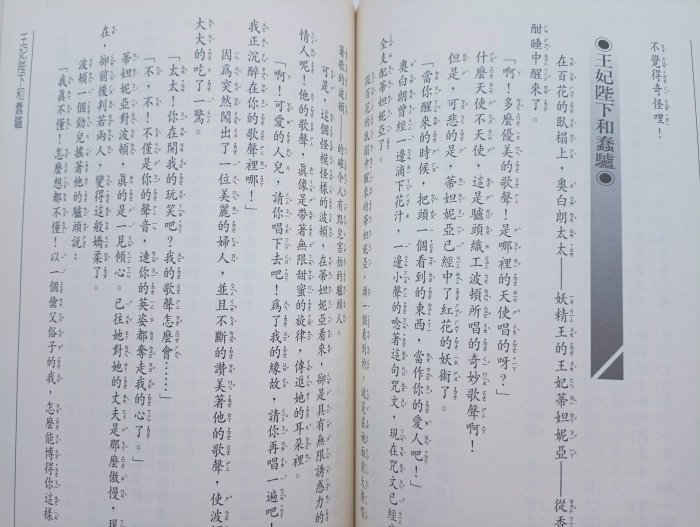 不覺得奇怪哩！
●王妃陛下和蠢驢●
在百花的臥榻上，奧白朗太太——妖精王的王妃蒂妲妮亞——從香
酣睡中醒來了。
「啊！多麼優美的歌聲！是哪裡的天使唱的呀？」
什麼天使不天使，這是驢頭織工波頓所唱的奇妙歌聲啊！
但是，可悲的是，蒂妲妮亞已經中了紅花的妖術了。
「當你醒來的時候，把頭一個看到的東西，當作你的愛人吧！」
奧白朗曾經一邊滴下花汁，一邊小聲的唸著這句咒文，現在咒文已經
全支配蒂妲妮亞了。
百花的臥榻中醒來的蒂妲妮亞，頭一個看到的，就是在她面前大聲唱
著歌的波頓——的確令人有點兒害怕的驢頭人。
可是，這個怪模怪樣的波頓，在蒂妲妮亞看來，卻是具有無限誘惑力的
情人呢！他的歌聲，真像是帶著無限甜蜜的旋律，傳進她的耳朵裡。
「啊！可愛的人兒，請你唱下去吧！為了我的緣故，請你再唱一遍吧！
我正沉醉在你的歌聲裡哪！」
因為突然闖出了一位美麗的婦人，並且不斷的讚美著他的歌聲，使波
大大的吃了一驚。
「太太！你在開我的玩笑吧？我的歌聲怎麼會……」
「不，不！不僅是你的聲音，連你的英姿都奪走我的心了。」
蒂妲妮亞對波頓，真的是一見傾心。已往她對她的丈夫是那麼傲慢，現
在，卻前後判若兩人，變得這般嬌柔了。
波頓一個勁兒搖著他的驢頭說：
「我真不懂！怎麼想都不懂！以一個傖父俗子的我，怎麼能博得你這樣
王妃陛下和蠢驢